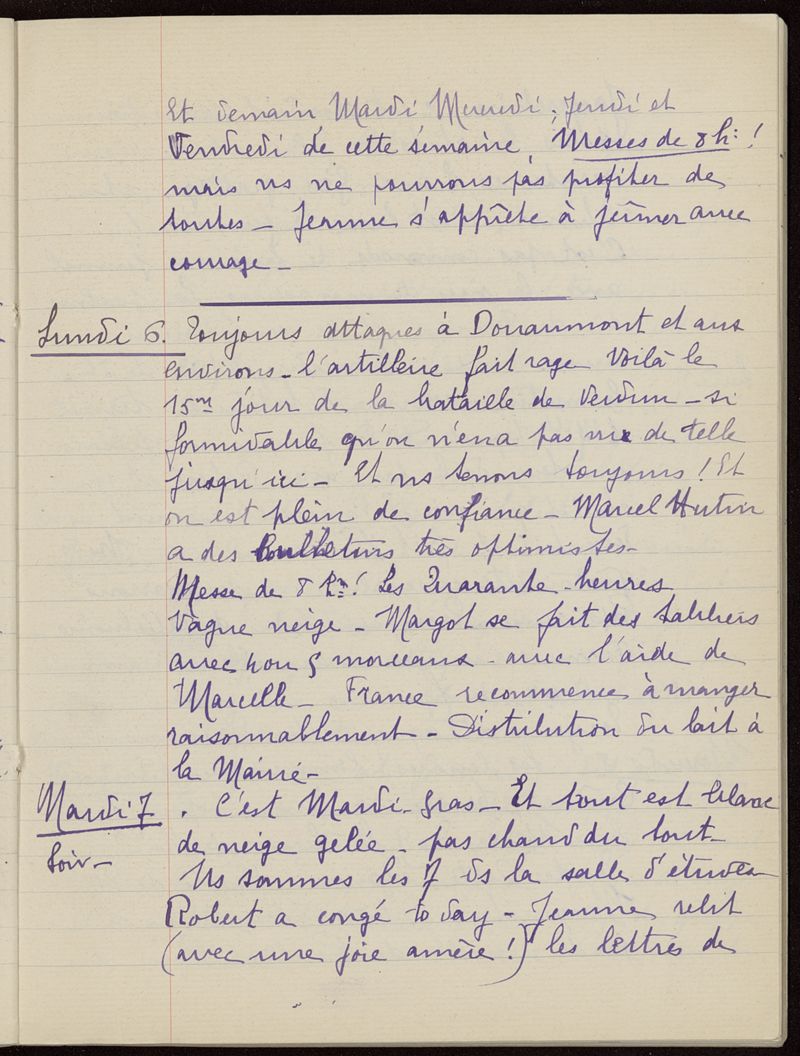 Et demain Mardi Mercredi, Jeudi et
Vendredi de cette semaine, Messes de 8 h: !
mais ns ne pourrons pas profiter de
toutes _ Jeanne s'apprête à jeûner avec
courage _
Lundi 6. Toujours attaques à Douaumont et aux
environs _ l'artillerie fait rage Voilà le
15me jour de la bataille de Verdun _ si
formidable qu'on n'en a pas vu de telle
jusqu'ici _ Et ns tenons toujours ! Et
on est plein de confiance _ Marcel Hutin
a des très optimistes _
Messe de 8 h ! Les Quarante-heures
Vague neige _ Margot se fait des tabliers
avec 4 ou 5 morceaux _ avec l'aide de
Marcelle _ France recommence à manger
raisonnablement _ Distribution du lait à
la Mairie _
Mardi 7 . C'est Mardi-gras _ Et tout est blanc
de neige gelée _ pas chaud du tout _
Soir _ Ns sommes les 7 ds la salle d'études
Robert a congé to day _ Jeanne relit
(avec une joie amère !) les lettres de